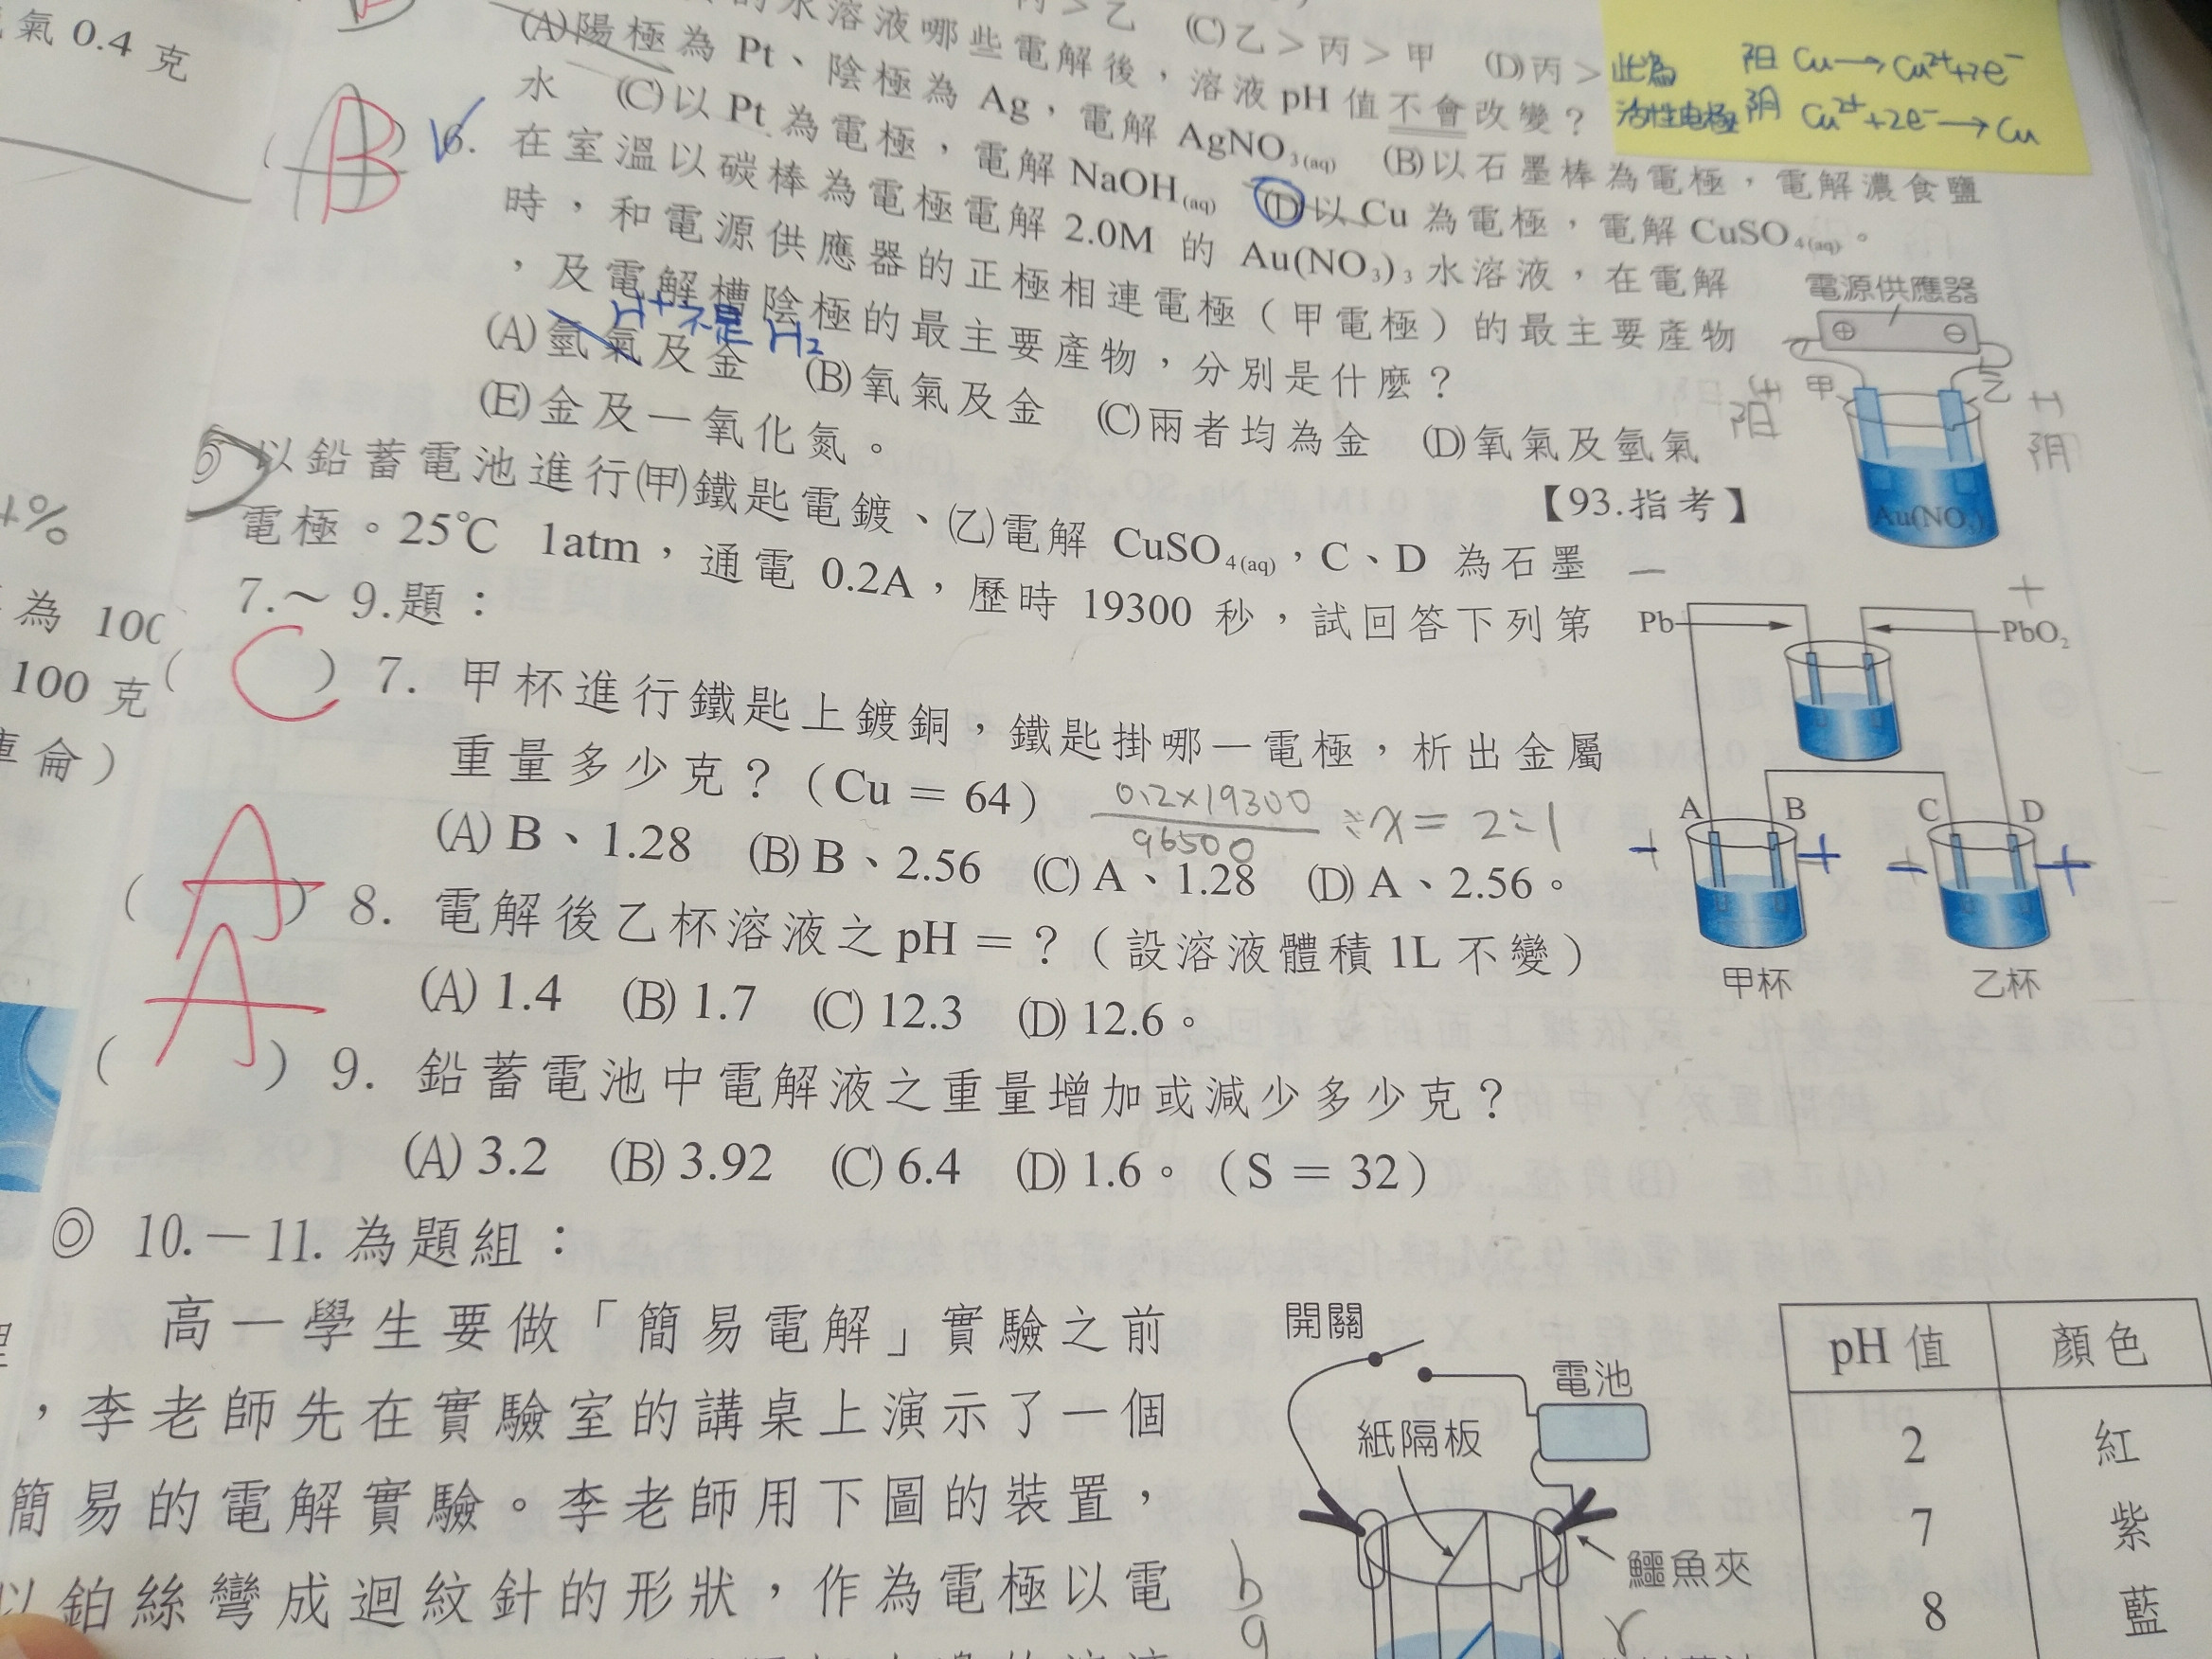 氣 0.4 克
的水溶液 丙＞乙 (C)乙＞丙＞甲 (D)丙＞
哪些電解後，溶液 pH 值不會改變？
(A)陽極為 Pt、陰極為 Ag，電解 AgNO₃(aq) (B)以石墨棒為電極，電解濃食鹽
水 (C)以 Pt 為電極，電解 NaOH(aq) (D)以 Cu 為電極，電解 CuSO₄(aq)。
此為 阳 Cu→Cu²⁺+2e⁻
活性电极 阴 Cu²⁺+2e⁻→Cu
( B ) 6. 在室溫以碳棒為電極電解 2.0M 的 Au(NO₃)₃ 水溶液，在電解
時，和電源供應器的正極相連電極（甲電極）的最主要產物
，及電解槽陰極的最主要產物，分別是什麼？
H⁺不是 H₂
(A)氫氣及金 (B)氧氣及金 (C)兩者均為金 (D)氧氣及氫氣
(E)金及一氧化氮。
【93.指考】
電源供應器
⊕ ⊖
甲 乙
阳 阴
Au(NO₃)
◎ 以鉛蓄電池進行(甲)鐵匙電鍍、(乙)電解 CuSO₄(aq)，C、D 為石墨
電極。25℃ 1atm，通電 0.2A，歷時 19300 秒，試回答下列第
7.～ 9.題：
− +
Pb PbO₂
A B C D
− + − +
甲杯 乙杯
( C ) 7. 甲杯進行鐵匙上鍍銅，鐵匙掛哪一電極，析出金屬
重量多少克？（Cu = 64）
0.2×19300
96500 : x = 2:1
(A) B、1.28 (B) B、2.56 (C) A、1.28 (D) A、2.56。
( A ) 8. 電解後乙杯溶液之 pH = ？（設溶液體積 1L 不變）
(A) 1.4 (B) 1.7 (C) 12.3 (D) 12.6。
( A ) 9. 鉛蓄電池中電解液之重量增加或減少多少克？
(A) 3.2 (B) 3.92 (C) 6.4 (D) 1.6。（S = 32）
為 100
100 克
庫侖）
◎ 10.－11. 為題組：
高一學生要做「簡易電解」實驗之前
，李老師先在實驗室的講桌上演示了一個
簡易的電解實驗。李老師用下圖的裝置，
以鉑絲彎成迴紋針的形狀，作為電極以電
開關
電池
紙隔板
鱷魚夾
pH 值 顏色
2 紅
7 紫
8 藍